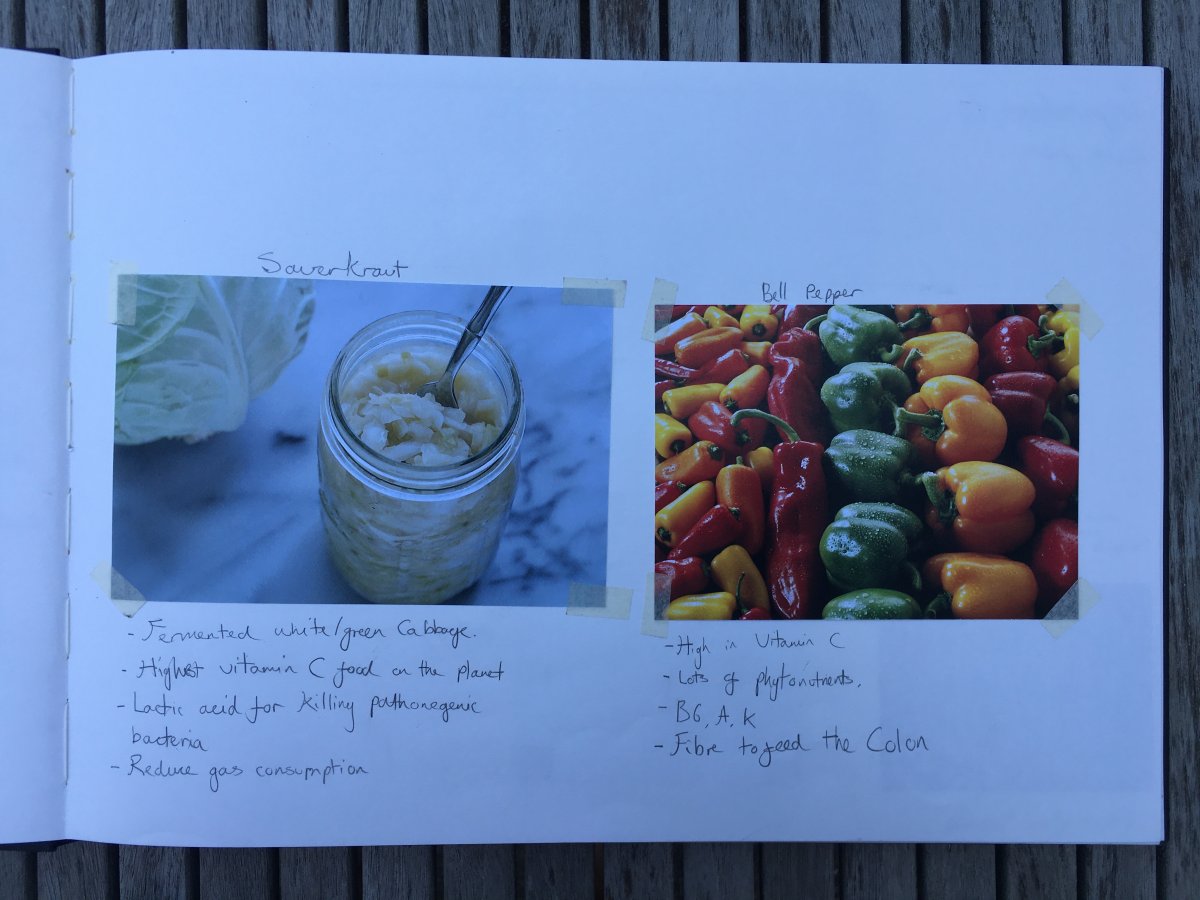 Sauerkraut
- Fermented white/green Cabbage.
- Highest vitamin C food on the planet
- Lactic acid for killing pathonegenic
bacteria
- Reduce gas consumption
Bell Pepper
- High in Vitamin C
- Lots of phytonutrients.
- B6, A, K
- Fibre to feed the Colon